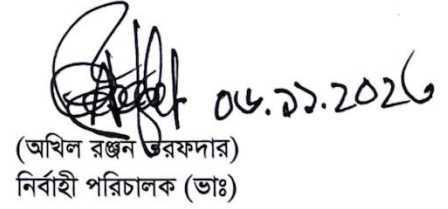 ০৬.১১.২০২৫
(অখিল রঞ্জন তরফদার)
নির্বাহী পরিচালক (ভাঃ)